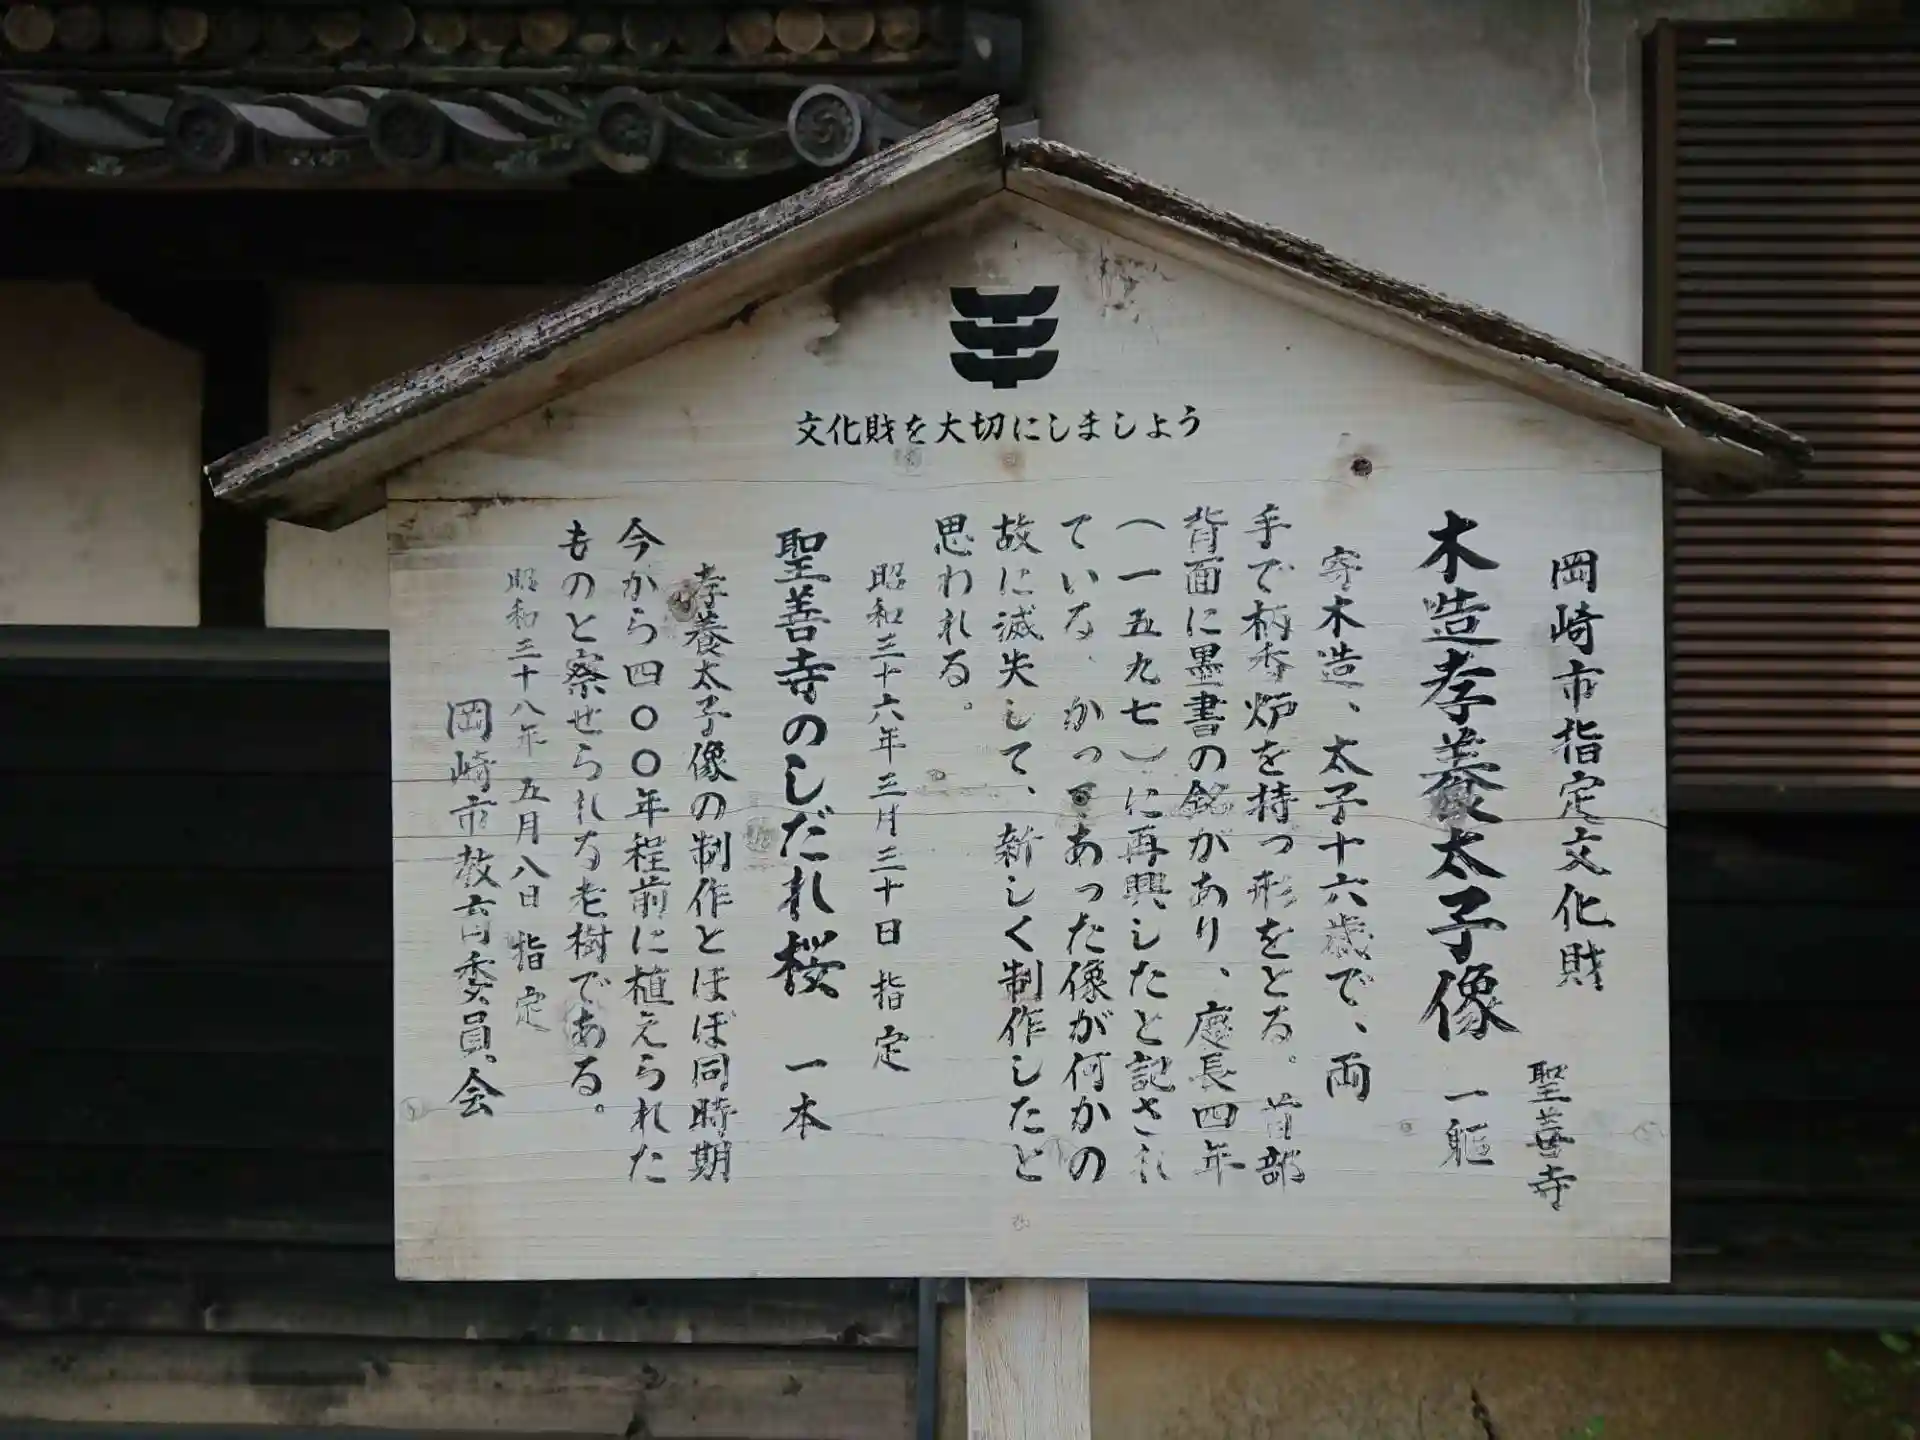 文化財を大切にしましょう
岡崎市指定文化財
聖善寺
木造孝養太子像 一軀
寄木造、太子十六歳で、両
手で柄香炉を持つ形をとる。首部
背面に墨書の銘があり、慶長四年
(一五九七)に再興したと記され
ている。かってあった像が何かの
故に滅失して、新しく制作したと
思われる。
昭和三十六年三月三十日 指定
聖善寺のしだれ桜 一本
孝養太子像の制作とほぼ同時期
今から四〇〇年程前に植えられた
ものと察せられる老樹である。
昭和三十八年五月八日 指定
岡崎市教育委員会